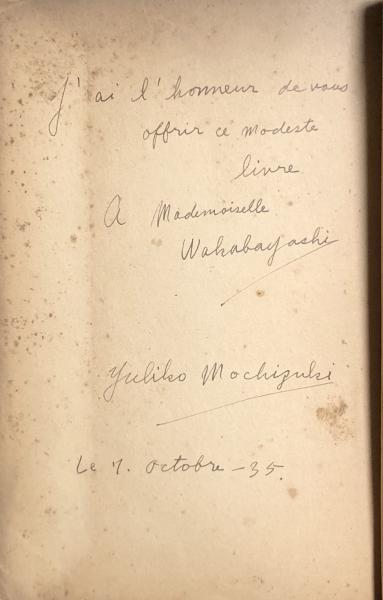 J'ai l'honneur de vous
offrir ce modeste
livre
A Mademoiselle
Wakabayashi
Yuliko Mochizuki
Le 7. octobre - 35.